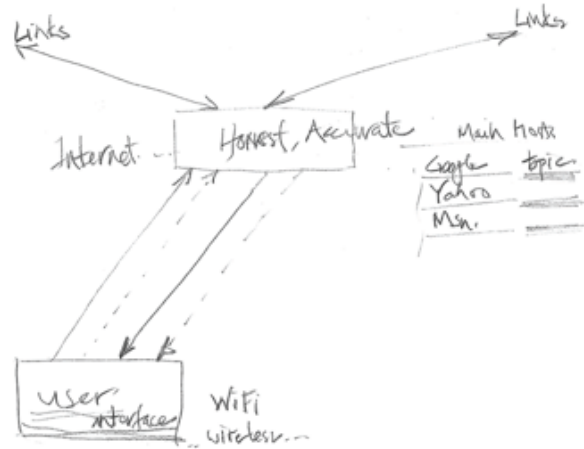 Links
Links
Honest, Accurate
Internet...
Main Host
Google topic
Yahoo
Msn.
user
interface
WiFi
wireless...